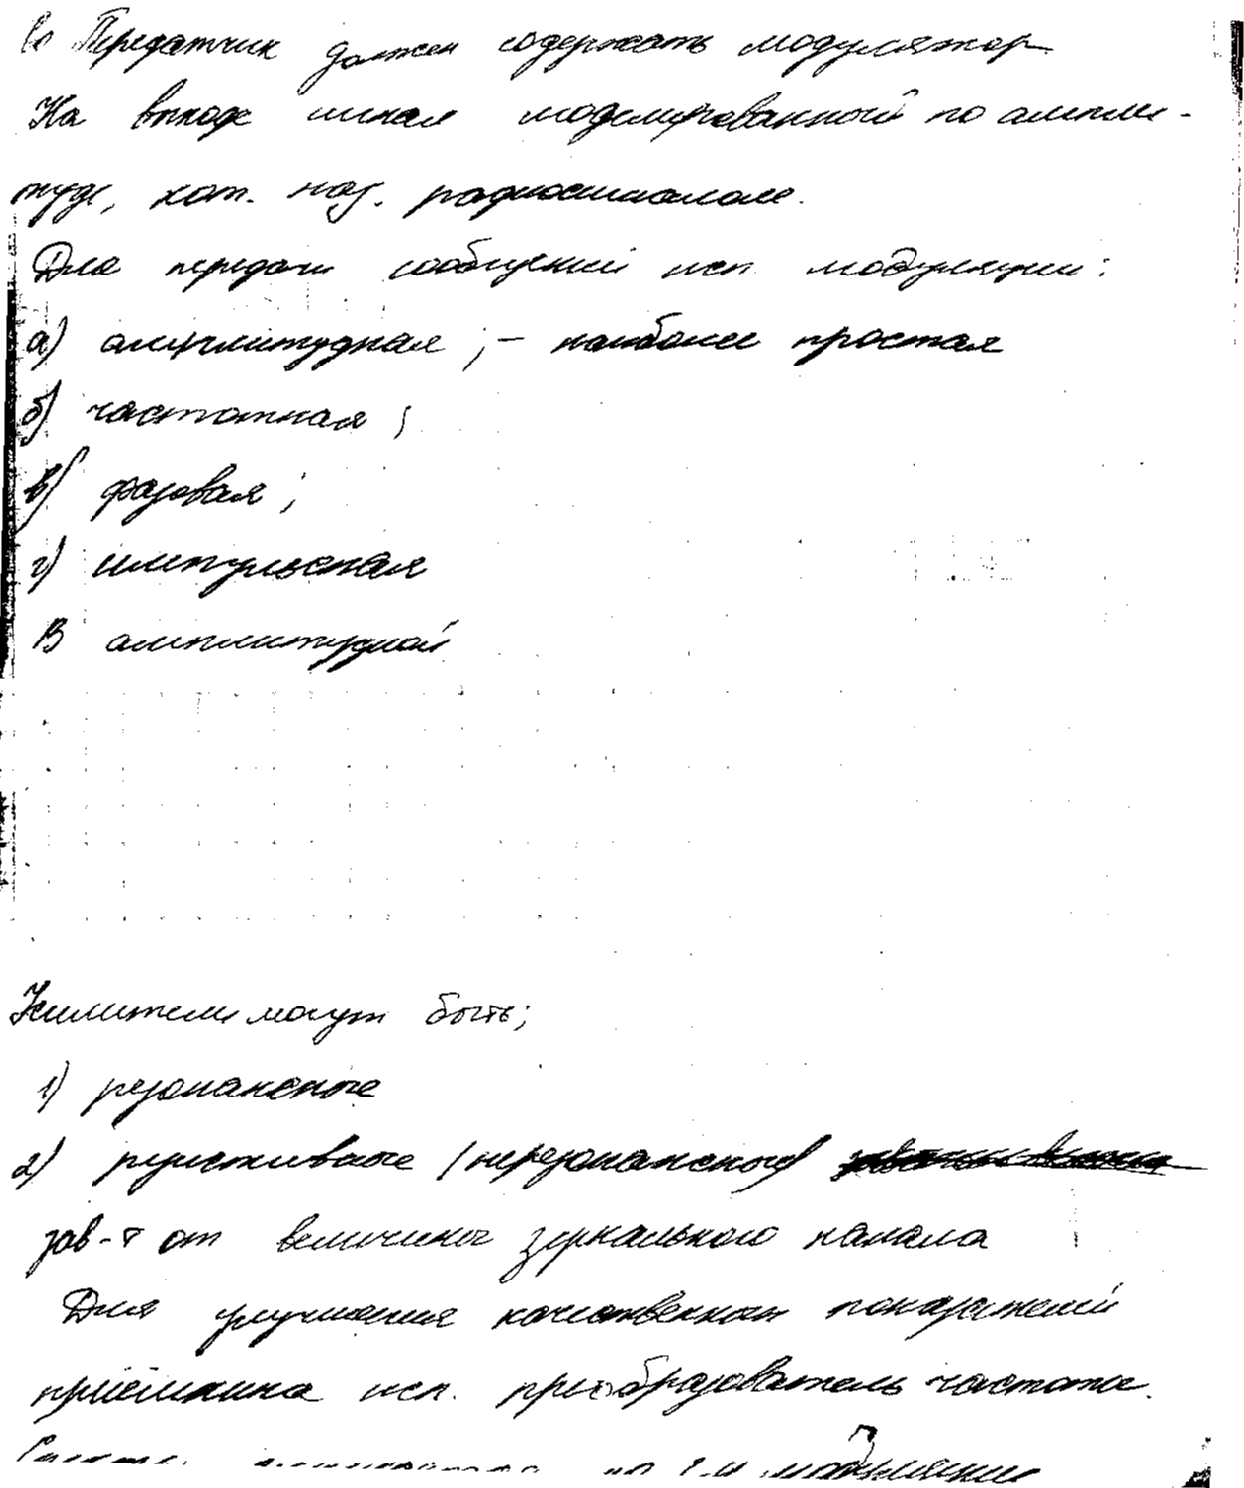 Передатчик должен содержать модулятор
На выходе сигнал моделированный по ампли-
туде, кот. наз. радиосигналом.
Для передачи сообщений исп. модуляции:
а) амплитудная ; - наиболее простая
б) частотная ;
в) фазовая ;
г) импульсная
В амплитудной
Усилители могут быть;
1) резонансные
2) резистивные (нерезонансные)
зав-т от величины зеркального канала
Для улучшения качественных показателей
приёмника исп. преобразователь частоты.